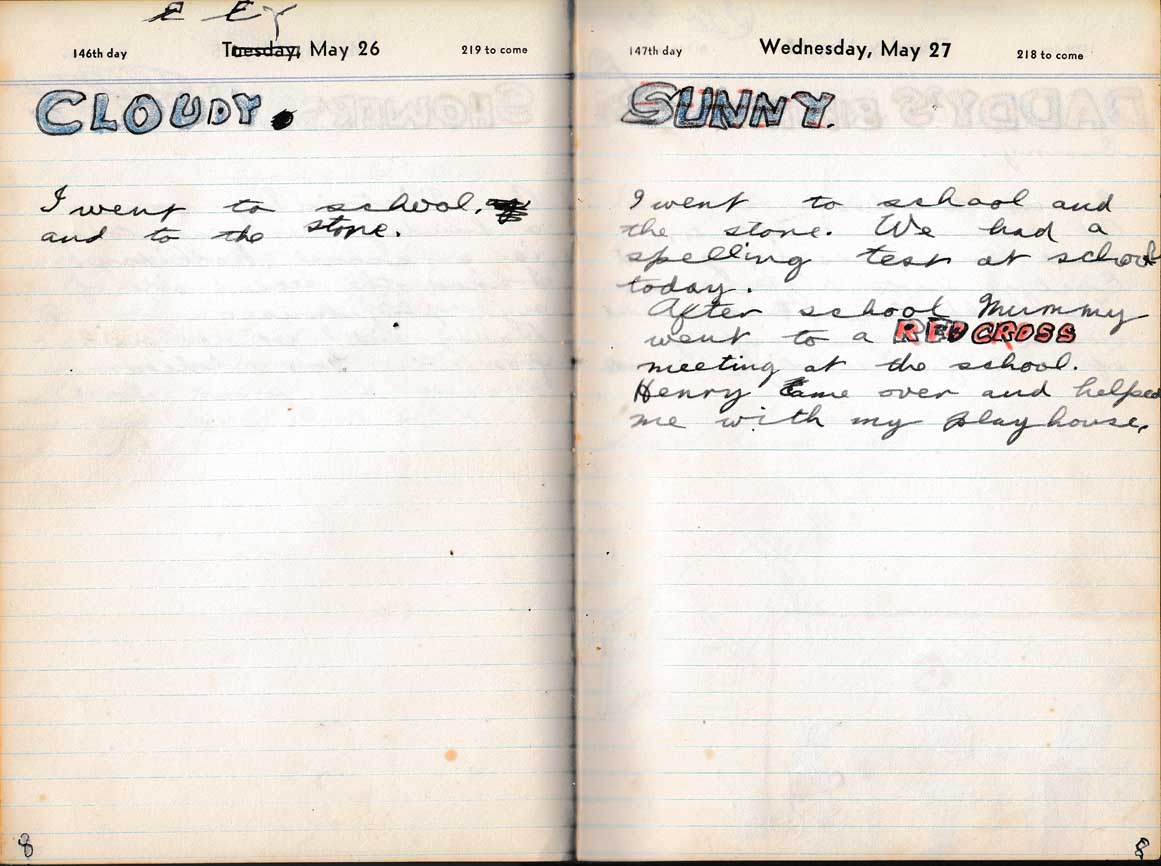 E EY
146th day Tuesday, May 26 219 to come
CLOUDY.
I went to school.
and to the store.
8
147th day Wednesday, May 27 218 to come
SUNNY.
I went to school and
the store. We had a
spelling test at school
today.
After school Mummy
went to a RED CROSS
meeting at the school.
Henry came over and helped
me with my playhouse.
8